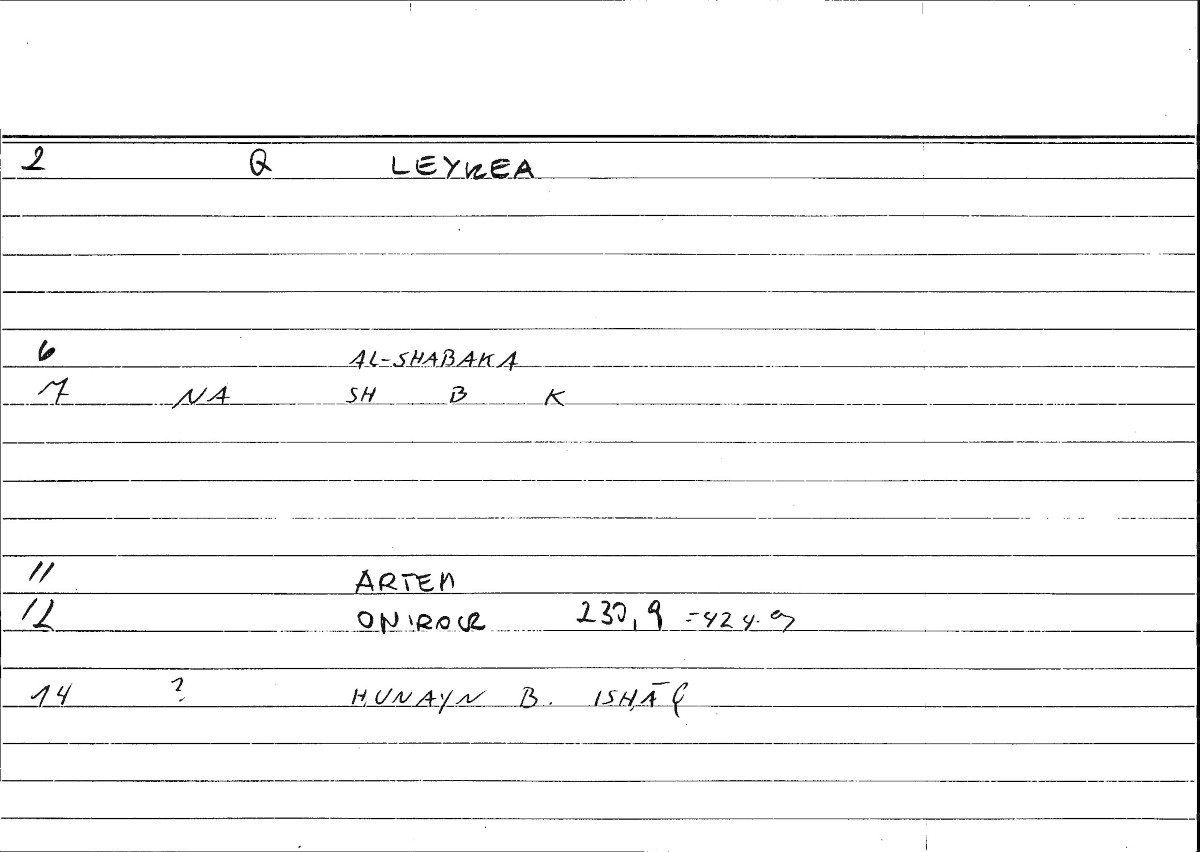 2 Q LEYKEA
6 AL-SHABAKA
7 NA SH B K
11 ARTEM
12 ONIROCR 230,9 =424.9
14 ? ḤUNAYN B. ISḤĀQ